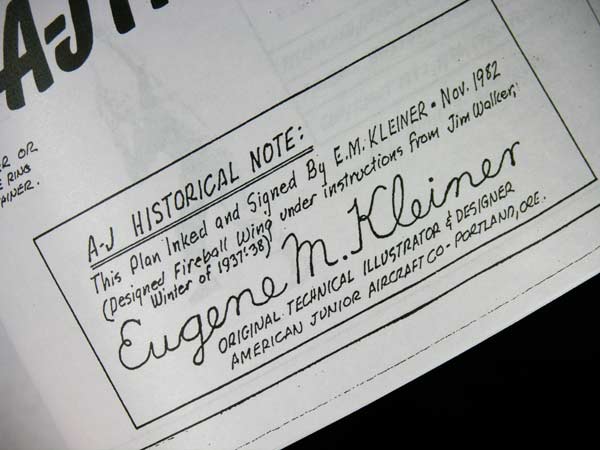 A-J
ER OR
RING
AINER.
A-J HISTORICAL NOTE:
This Plan Inked and Signed By E.M. KLEINER • Nov. 1982
(Designed Fireball Wing under instructions from Jim Walker,
Winter of 1937-'38)
Eugene M. Kleiner
ORIGINAL TECHNICAL ILLUSTRATOR & DESIGNER
AMERICAN JUNIOR AIRCRAFT CO - PORTLAND, ORE.